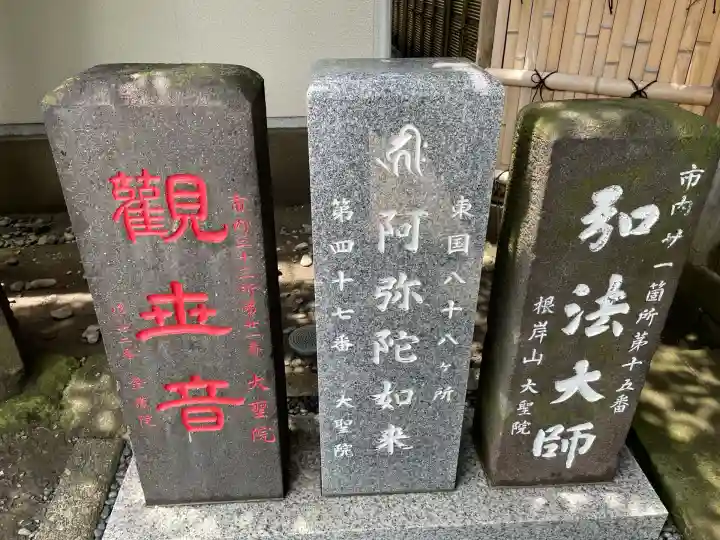 市内三十三所第廿一番 大聖院
觀世音
東国八十八ヶ所
阿弥陀如来
第四十七番 大聖院
市内廿一箇所第十五番
弘法大師
根岸山 大聖院